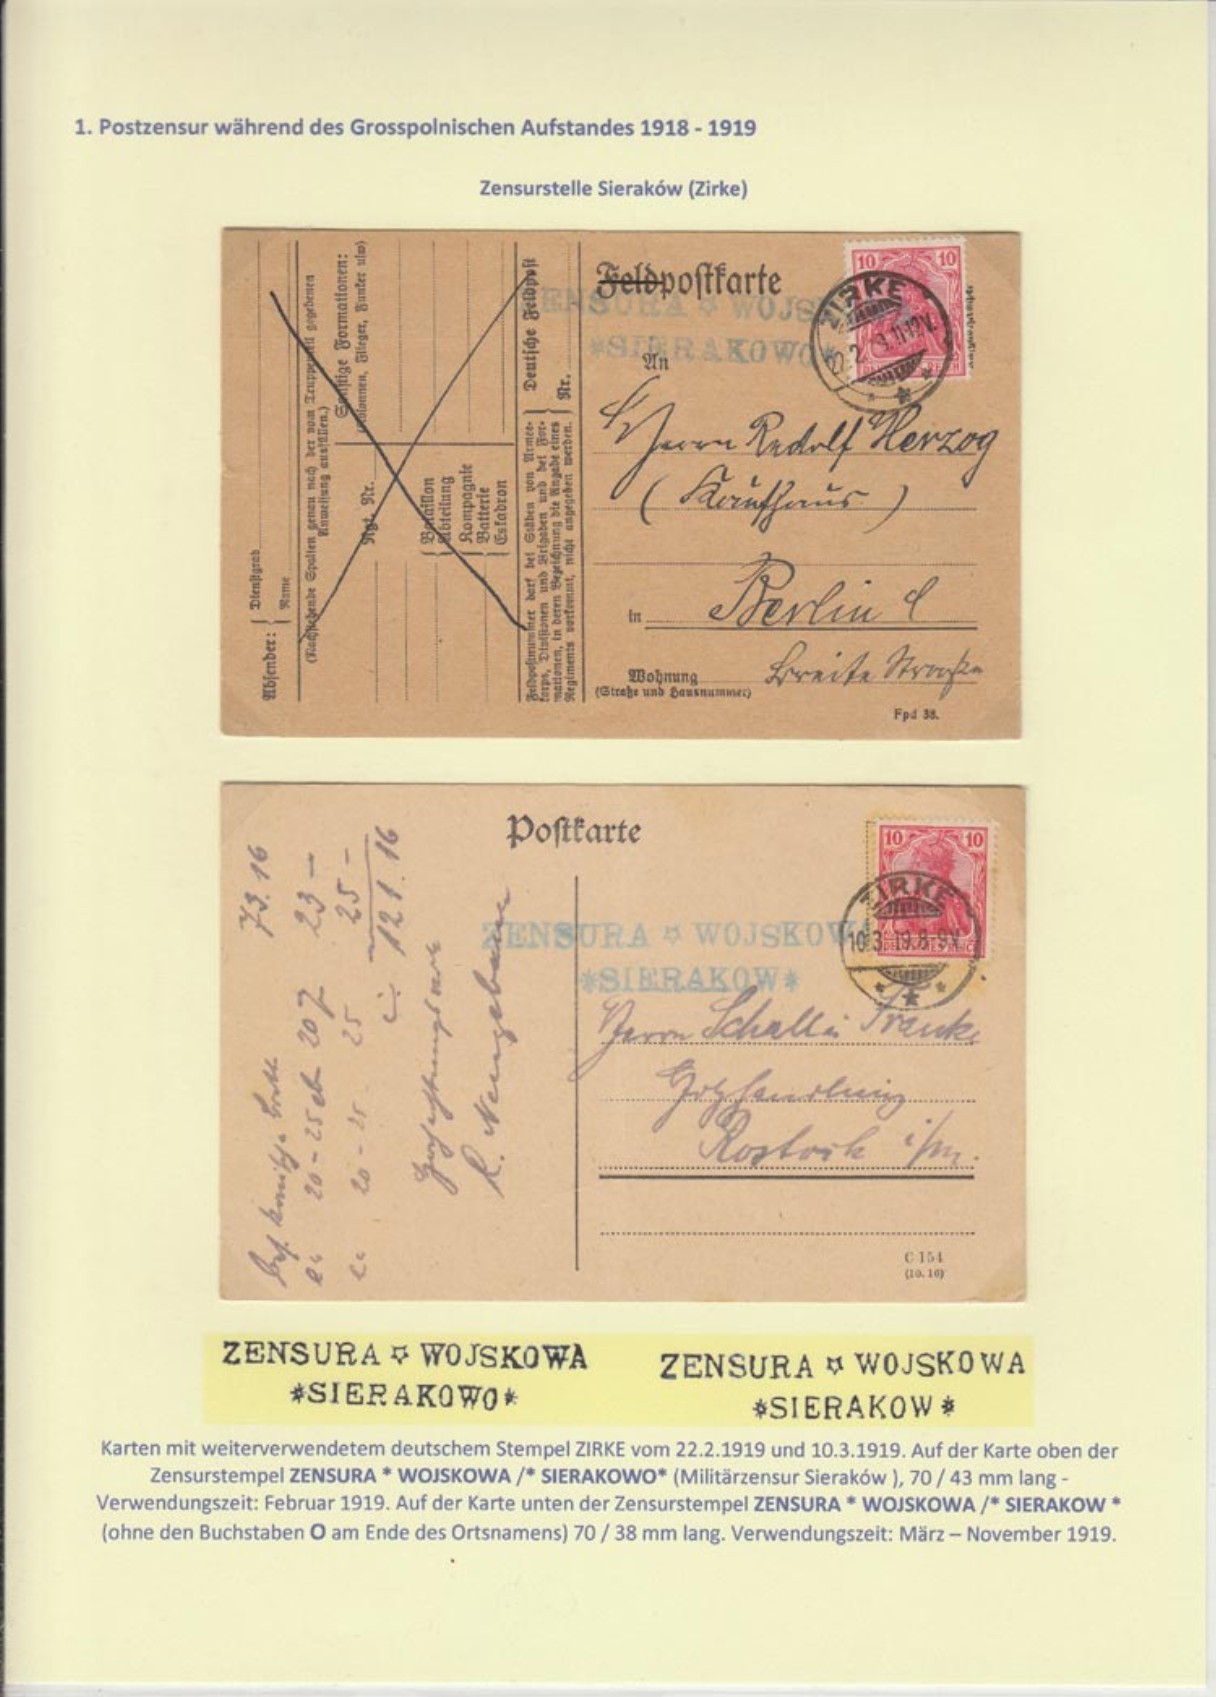 1. Postzensur während des Grosspolnischen Aufstandes 1918 - 1919
Zensurstelle Sieraków (Zirke)
Absender:
Dienstgrad
Name
(Nachstehende Spalten genau nach der vom Truppenteil gegebenen
Anweisung ausfüllen.)
Sonstige Formationen:
(Kolonnen, Flieger, Funker usw)
Rgt. Nr.
Bataillon
Abteilung
Kompagnie
Batterie
Eskadron
Deutsche Feldpost
Nr.
Feldpostnummer darf bei Stäben von Armee-
korps, Divisionen und Brigaden und bei For-
mationen, in deren Bezeichnung die Angabe eines
Regiments vorkommt, nicht angegeben werden.
Feldpostkarte
10 10
ZENSURA WOJS
*SIERAKOWO*
ZIRKE
An
Herrn Rudolf Herzog
(Kaufhaus)
in Berlin C
Wohnung Breite Straße
(Straße und Hausnummer)
Fpd 38.
Postkarte
10 10
ZIRKE
10.3.19.8-9V.
ZENSURA ¤ WOJSKOWA
*SIERAKOW*
73.16
23 –
25 –
121.16
20 - 25
20 - 25 25
Herrn Schalk & Franke
Holzhandlung
Rostock i/m.
C 154
(10.16)
ZENSURA ¤ WOJSKOWA
*SIERAKOWO*
ZENSURA ¤ WOJSKOWA
*SIERAKOW*
Karten mit weiterverwendetem deutschem Stempel ZIRKE vom 22.2.1919 und 10.3.1919. Auf der Karte oben der
Zensurstempel ZENSURA * WOJSKOWA /* SIERAKOWO* (Militärzensur Sieraków ), 70 / 43 mm lang -
Verwendungszeit: Februar 1919. Auf der Karte unten der Zensurstempel ZENSURA * WOJSKOWA /* SIERAKOW *
(ohne den Buchstaben O am Ende des Ortsnamens) 70 / 38 mm lang. Verwendungszeit: März – November 1919.